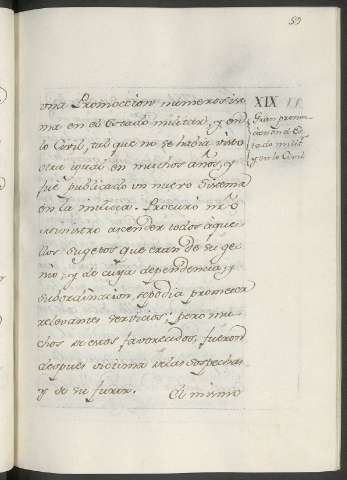 59
una Promoccion numerosisi
ma en el Estado militar, y en
lo Civil, tal que no se habia visto
otra igual en muchos años, y
fué publicado un nuevo Sistema
en la milicia. Procuró nrõ
Ministro ascender todos aque
llos sugetos que eran de su ge
nio, y de cuya dependencia, y
subordinacion se podia prometer
relevantes servicios; pero mu
chos de estos favorecidos, fueron
despues victima de las sospechas
y de su furor. El mismo
XIX
Gran promo
cion en el Es
tado milit.
y en lo Civil